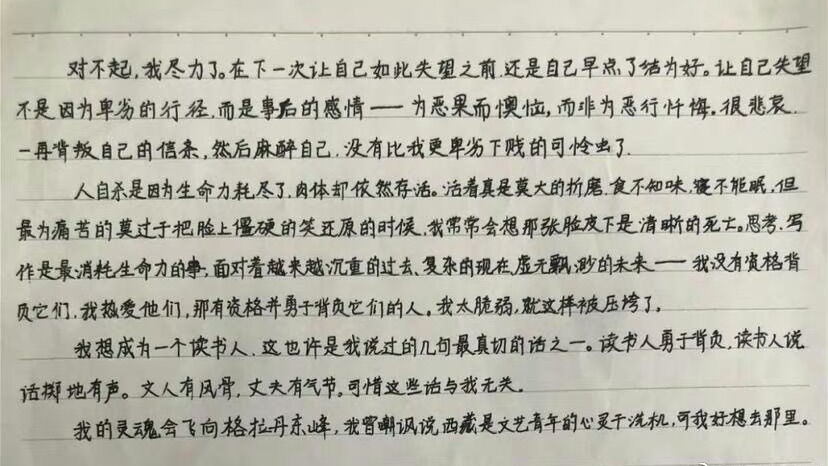 对不起，我尽力了。在下一次让自己如此失望之前，还是自己早点了结为好。让自己失望
不是因为卑劣的行径，而是事后的感情——为恶果而懊恼，而非为恶行忏悔。很悲哀，
一再背叛自己的信条，然后麻醉自己，没有比我更卑劣下贱的可怜虫了。
人自杀是因为生命力耗尽了，肉体却依然存活。活着真是莫大的折磨，食不知味，寝不能眠，但
最为痛苦的莫过于把脸上僵硬的笑还原的时候，我常常会想那张脸皮下是清晰的死亡。思考、写
作是最消耗生命力的事，面对着越来越沉重的过去、复杂的现在、虚无飘渺的未来——我没有资格背
负它们，我热爱他们，那有资格并勇于背负它们的人。我太脆弱，就这样被压垮了。
我想成为一个读书人，这也许是我说过的几句最真切的话之一。读书人勇于背负，读书人说
话掷地有声。文人有风骨，丈夫有气节。可惜这些话与我无关。
我的灵魂会飞向格拉丹东峰，我曾嘲讽说西藏是文艺青年的心灵干洗机，可我好想去那里。